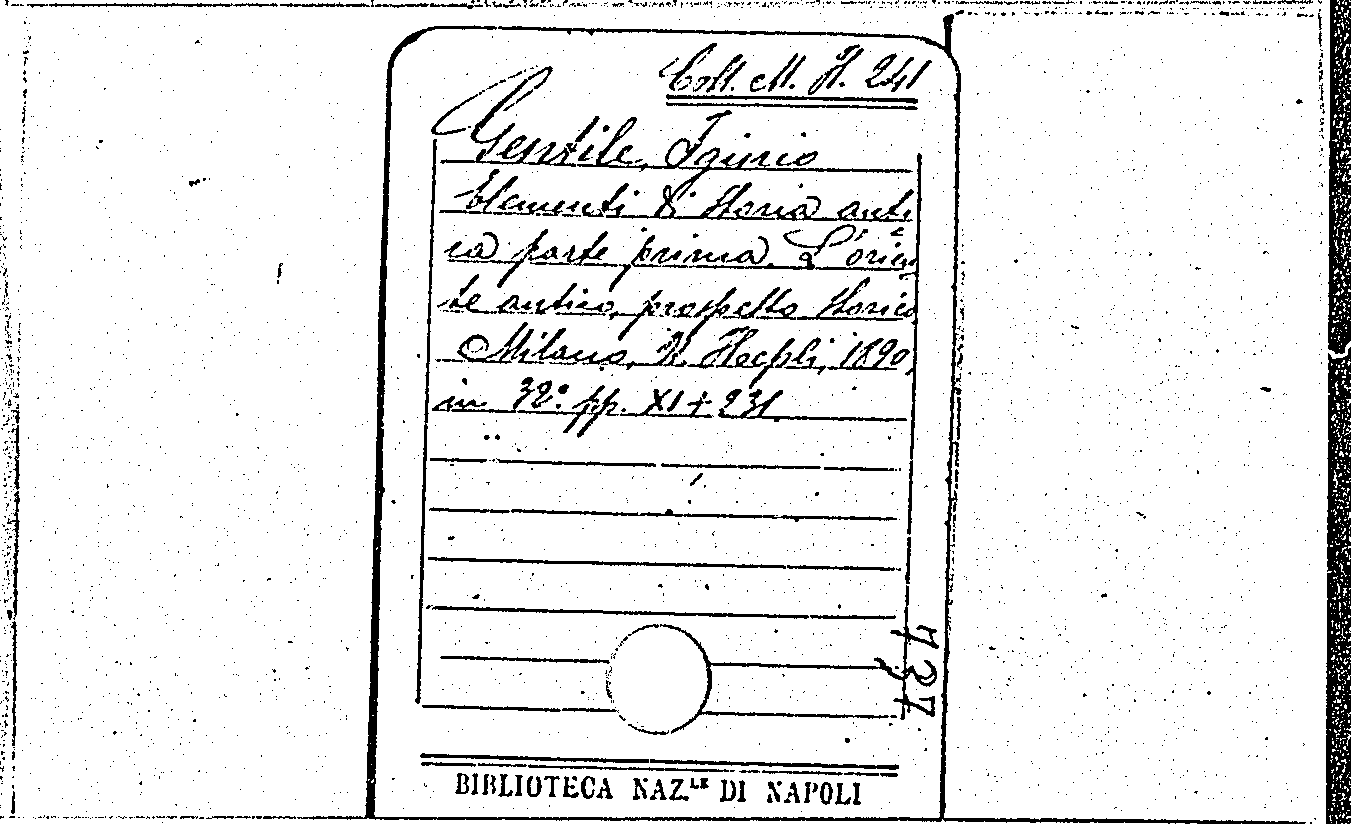 Coll. M. H. 241
Gentile, Iginio
Elementi di storia anti
ca parte prima. L'orien
te antico, prospetto storico
Milano, U. Hoepli, 1890,
in 32º. pp. XI + 231
737
BIBLIOTECA NAZ.LE DI NAPOLI